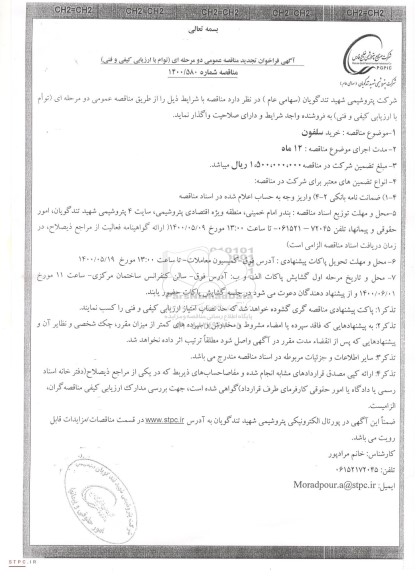 CH2=CH2 CH2=CH2 CH2=CH2 CH2=CH2 CH2=CH2
بسمه تعالی
PGPIC
شرکت پتروشیمی شهید تندگویان (سهامی عام)
آگهی فراخوان تجدید مناقصه عمومی دو مرحله ای (توام با ارزیابی کیفی و فنی)
مناقصه شماره ۱۴۰۰/۵۸۰
شرکت پتروشیمی شهید تندگویان (سهامی عام ) در نظر دارد مناقصه با شرایط ذیل را از طریق مناقصه عمومی دو مرحله ای (توأم
با ارزیابی کیفی و فنی) به فروشنده واجد شرایط و دارای صلاحیت واگذار نماید.
۱-موضوع مناقصه : خرید سلفون
۲-مدت اجرای موضوع مناقصه : ۱۲ ماه
۳-مبلغ تضمین شرکت در مناقصه ۱,۵۰۰,۰۰۰,۰۰۰ ریال میباشد.
۴-انواع تضمین های معتبر برای شرکت در مناقصه:
۴-۱) ضمانت نامه بانکی ۴-۲) واریز وجه به حساب اعلام شده در اسناد مناقصه
۵-محل و مهلت توزیع اسناد مناقصه : بندر امام خمینی، منطقه ویژه اقتصادی پتروشیمی، سایت ۴ پتروشیمی شهید تندگویان، امور
حقوقی و پیمانها، تلفن ۷۲۰۴۵ -۰۶۱۵۲۱ تا ساعت ۱۳:۰۰ مورخ ۱۴۰۰/۰۵/۰۹( ارائه گواهینامه فعالیت از مراجع ذیصلاح، در
زمان دریافت اسناد مناقصه الزامی است)
۶- محل و مهلت تحویل پاکات پیشنهادی : آدرس فوق-کمیسیون معاملات- تا ساعت ۱۳:۰۰ مورخ ۱۴۰۰/۰۵/۱۹
۷- محل و تاریخ مرحله اول گشایش پاکات الف و ب: آدرس فوق- سالن کنفرانس ساختمان مرکزی- ساعت ۱۱ مورخ
۱۴۰۰/۰۶/۰۱ و از پیشنهاد دهندگان دعوت می شود در جلسه گشایش پاکات حضور یابند.
تذکر۱: پاکت پیشنهادی مناقصه گری گشوده خواهد شد که حد نصاب امتیاز ارزیابی کیفی و فنی را کسب نمایند.
تذکر۲: به پیشنهادهایی که فاقد سپرده یا امضاء مشروط و مخدوش و سپرده های کمتر از میزان مقرر، چک شخصی و نظایر آن و
پیشنهادهایی که پس از انقضاء مدت مقرر در آگهی واصل شود مطلقاً ترتیب اثر داده نخواهد شد.
تذکر۳: سایر اطلاعات و جزئیات مربوطه در اسناد مناقصه مندرج می باشد.
تذکر۴: ارائه کپی مصدق قراردادهای مشابه انجام شده و مفاصاحساب‌های ذیربط که در یکی از مراجع ذیصلاح(دفتر خانه اسناد
رسمی یا دادگاه یا امور حقوقی کارفرمای طرف قرارداد)گواهی شده است، جهت بررسی مدارک ارزیابی کیفی مناقصه‌گران،
الزامیست.
ضمناً این آگهی در پورتال الکترونیکی پتروشیمی شهید تندگویان به آدرس www.stpc.ir در قسمت مناقصات/مزایدات قابل
رویت می باشد.
کارشناس: خانم مرادپور
تلفن: ۰۶۱۵۲۱۷۲۰۴۵
ایمیل: Moradpour.a@stpc.ir
STPC.IR